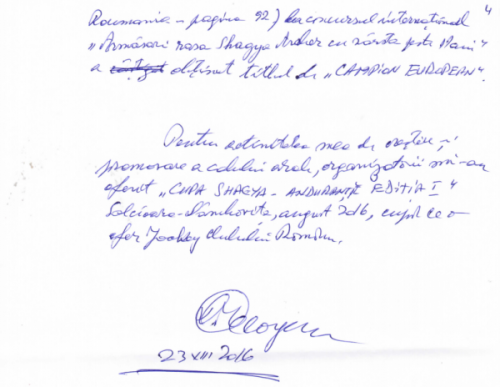 4
Roumania - pagina 92) la concursul internațional
„Armăsari rasa Shagya Araber cu vârsta peste 4 ani"
a câștigat obținut titlul de „CAMPION EUROPEAN".
Pentru activitatea mea de creștere și
promovare a calului arab, organizatorii mi-au
oferit „CUPA SHAGYA - ANDURANȚĂ EDIȚIA I"
august 2016, cupă ce o
ofer Jockey Clubului Român.
23 VIII 2016